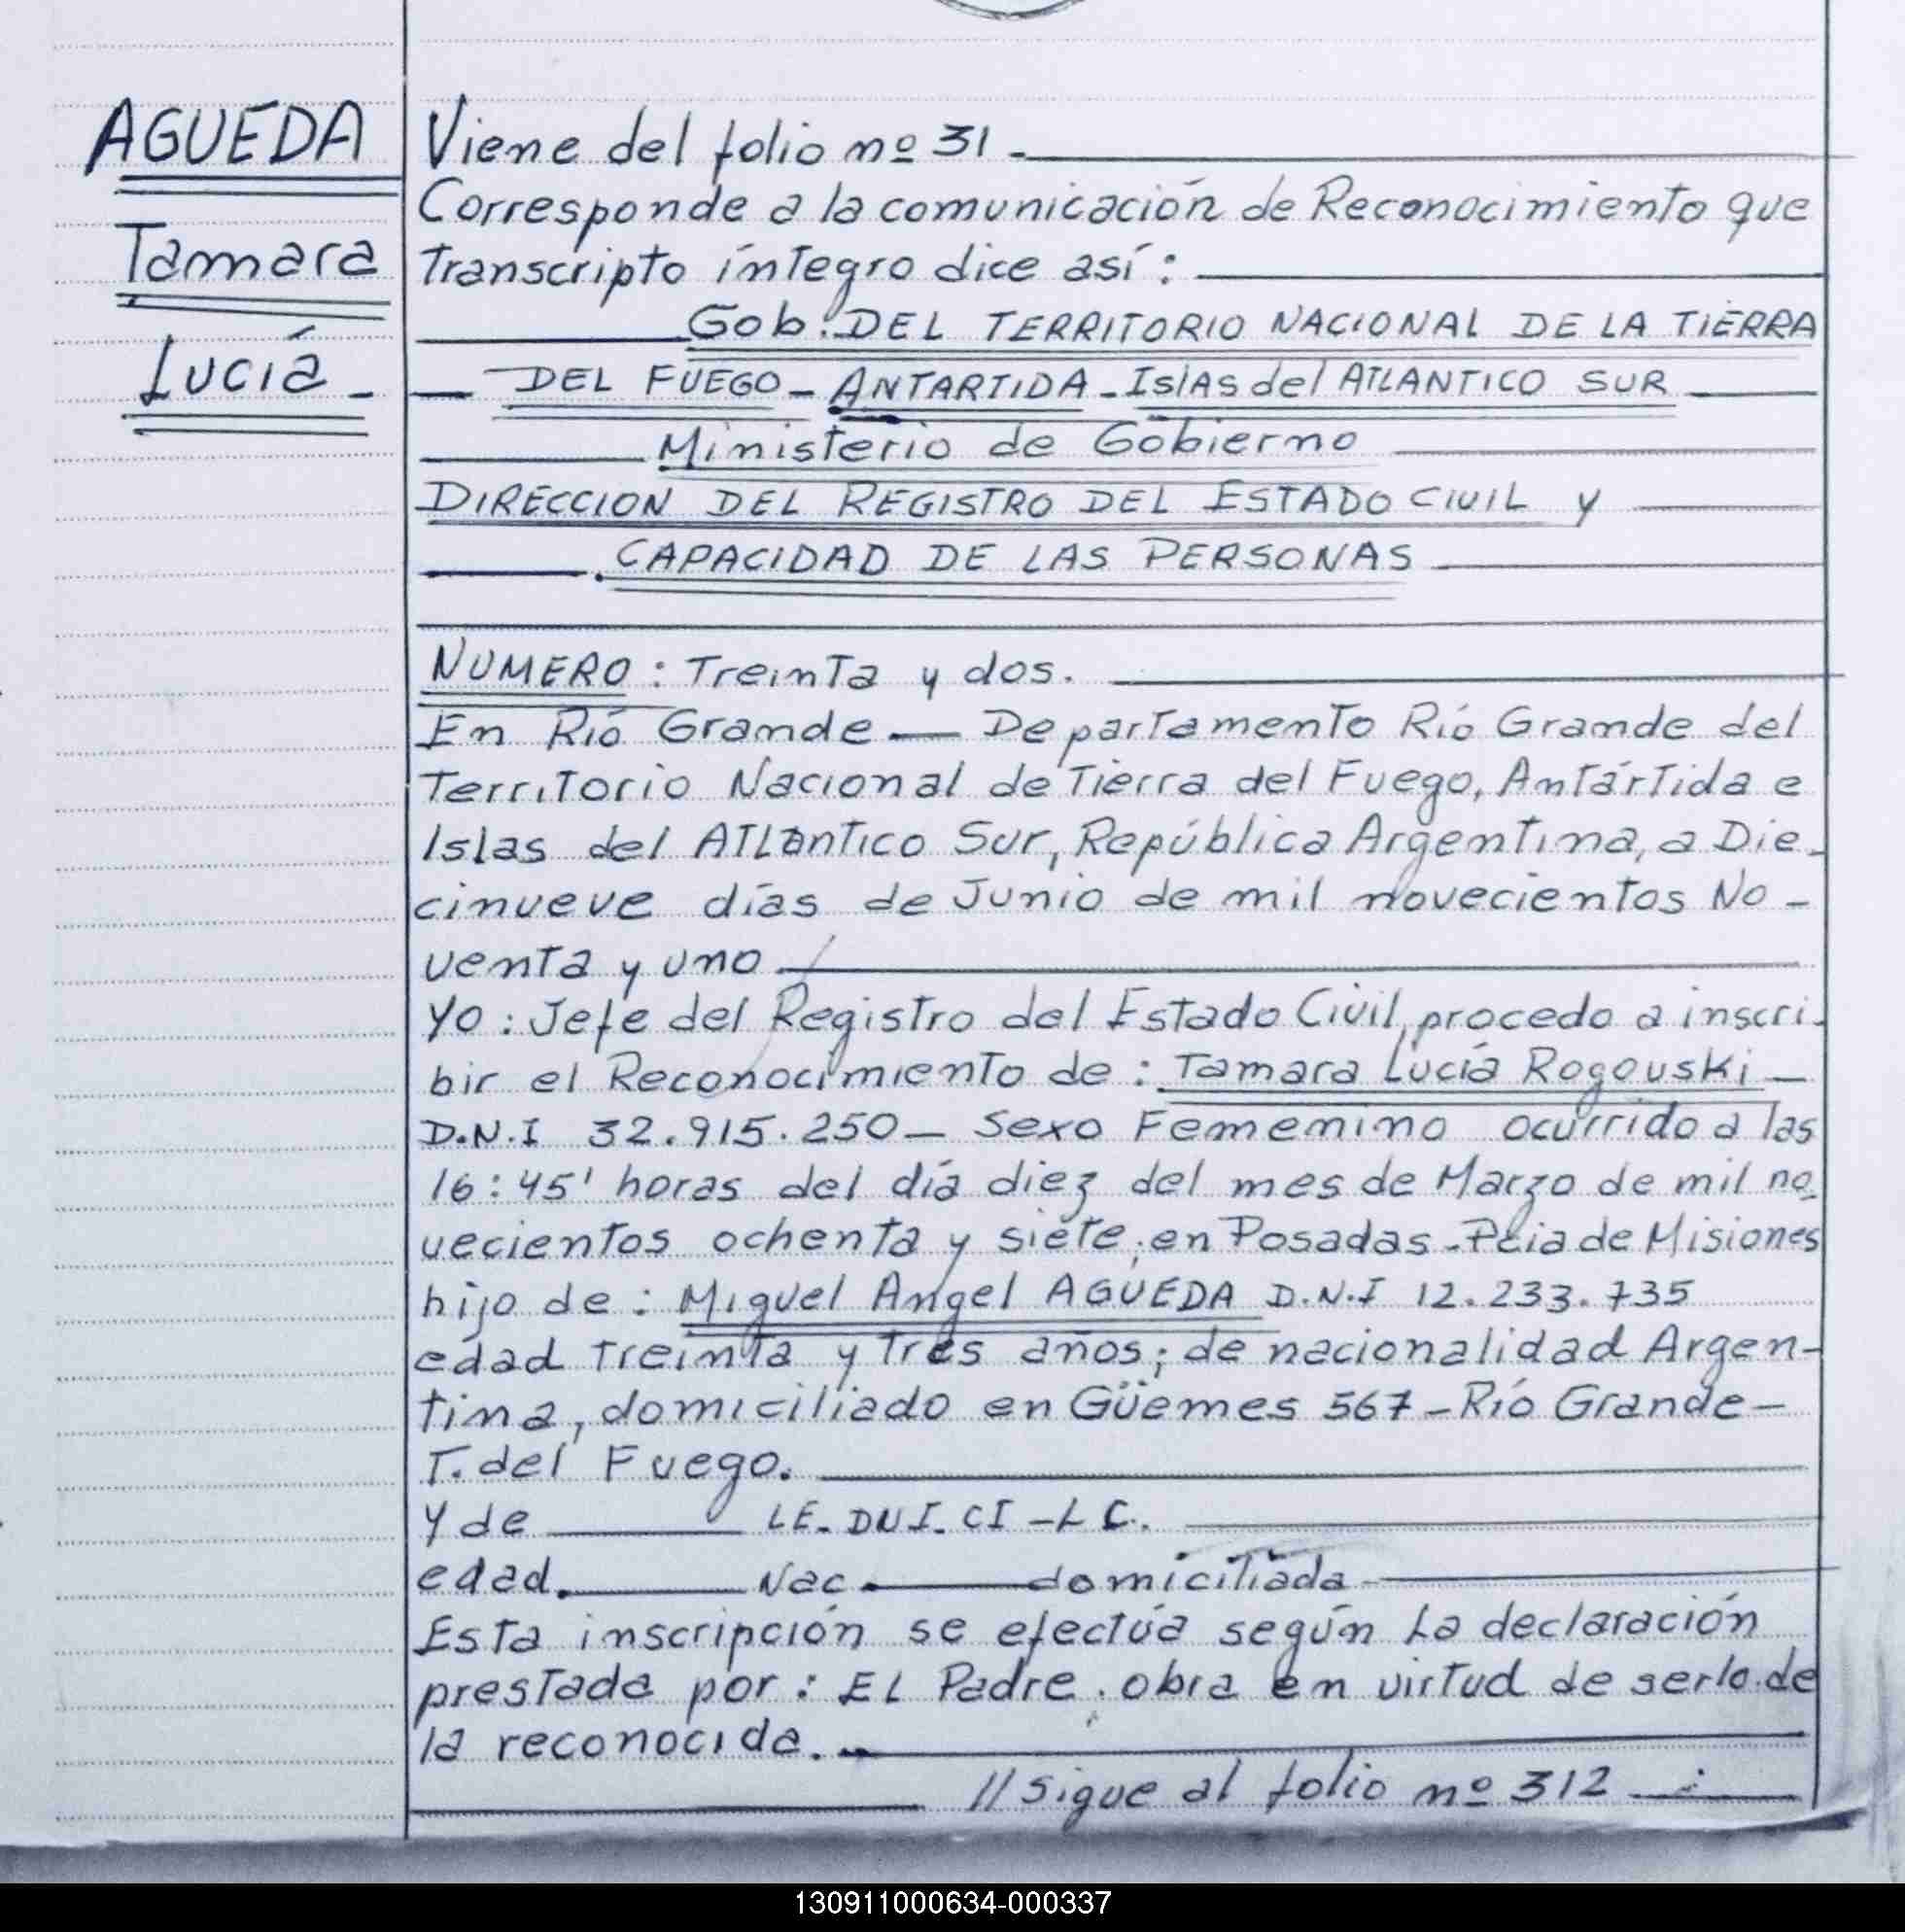 AGUEDA
Tamara
Lucía -
Viene del folio nº 31 -
Corresponde a la comunicación de Reconocimiento que
Transcripto íntegro dice así:
Gob. DEL TERRITORIO NACIONAL DE LA TIERRA
DEL FUEGO - ANTARTIDA - Islas del ATLANTICO SUR
Ministerio de Gobierno
DIRECCION DEL REGISTRO DEL ESTADO CIVIL y
CAPACIDAD DE LAS PERSONAS
NUMERO: Treinta y dos.
En Río Grande — Departamento Río Grande del
Territorio Nacional de Tierra del Fuego, Antártida e
Islas del Atlántico Sur, República Argentina, a Die-
cinueve días de Junio de mil novecientos No-
venta y uno
Yo: Jefe del Registro del Estado Civil, procedo a inscri-
bir el Reconocimiento de: Tamara Lucía Rogouski -
D.N.I 32.915.250 - Sexo Femenino ocurrido a las
16:45' horas del día diez del mes de Marzo de mil no-
vecientos ochenta y siete, en Posadas - Pcia de Misiones
hijo de: Miguel Angel AGUEDA D.N.I 12.233.735
edad treinta y tres años; de nacionalidad Argen-
tina, domiciliado en Güemes 567 - Río Grande -
T. del Fuego.
Y de LE. DNI. CI - LC.
edad. Nac. domiciliada
Esta inscripción se efectúa según La declaración
prestada por: EL Padre. obra en virtud de serlo de
la reconocida.
// Sigue al folio nº 312
130911000634-000337